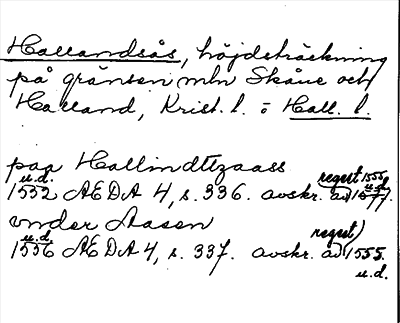 Hallandsås, höjdsträckning
på gränsen mln Skåne och
Halland, Krist. l. o Hall. l.
paa Hallindtzaass
u.d. regest 1555 u.d.
1532 AEDA 4, s. 336. avskr. av 1577.
vnder Aasen
u.d. regest)
1556 AEDA 4, s. 337. avskr. av 1555.
u.d.